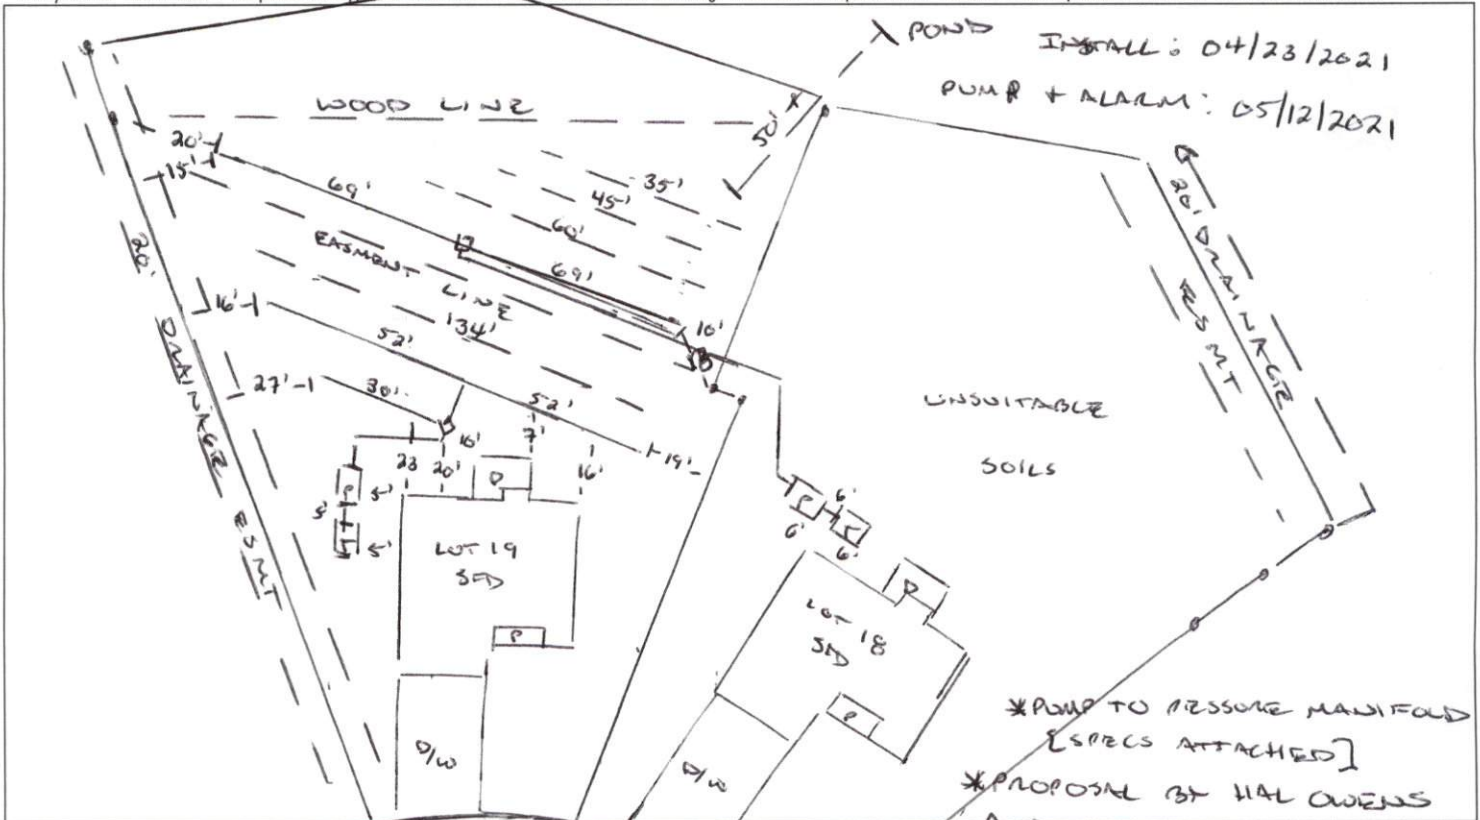 POND
INSTALL: 04/23/2021
PUMP + ALARM: 05/12/2021
WOOD LINE
50'
20'
15'
69'
35'
45'
60'
69'
EASMENT LINE
134'
10'
20' DRAINAGE ESMT
16'
52'
27'
30'
52'
19'
16'
7'
16'
23
20'
D
P
5'
5'
T
5'
LOT 19
SFD
P
D/W
UNSUITABLE
SOILS
20' DRAINAGE
ESMT
P
6'
6'
T
6'
D
LOT 18
SFD
P
D/W
*PUMP TO PRESSURE MANIFOLD
[SPECS ATTACHED]
*PROPOSAL BY HAL OWENS